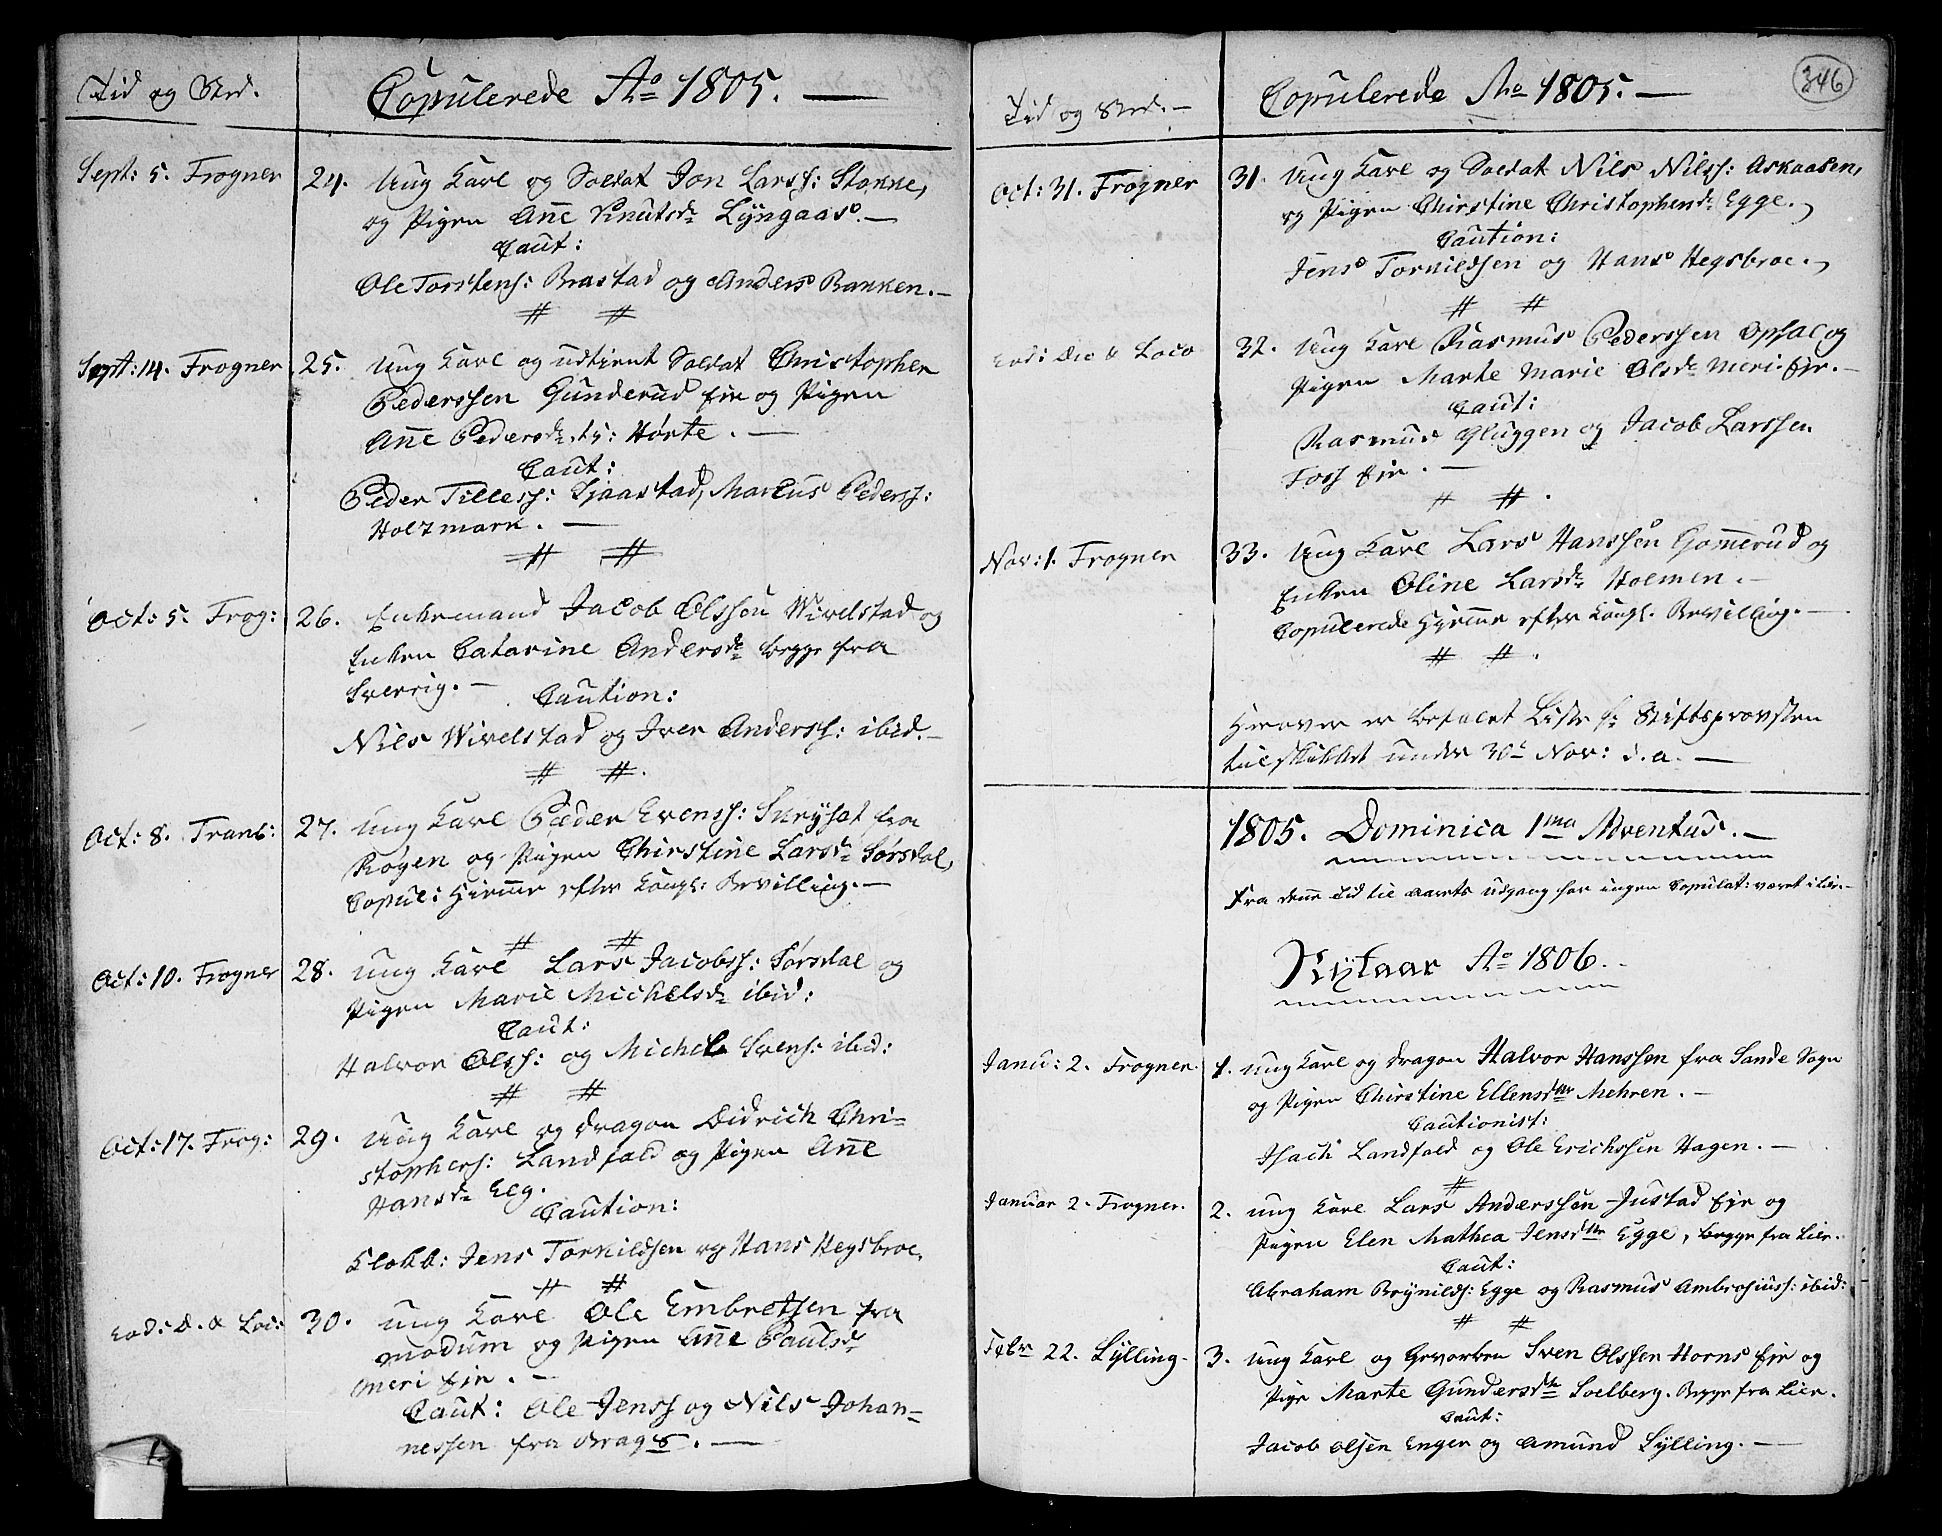 Tid og Sted.
Copulerede Ao 1805. —
Sept: 5. Frogner
24. Ung Karl og Soldat Jon Larss: Stokke,
og Pigen Anne Knutsdr Lyngaas. —
Caut:
Ole Torstens: Brastad og Anders Bakken. —
# #
Sept: 14. Frogner
25. Ung Karl og udtient Soldat Christopher
Pederssen Gunderud Eje og Pigen
Anne Pedersdr. Hørte. —
Caut:
Peder Tilless: Sjaastad, Marcus Peders:
Holtzmark. —
# #
Oct: 5. Frog:
26. Enkemand Jacob Olssen Wivelstad og
Enken Catarine Andersdr begge fra
Sverrig. —
Caution:
Nils Wivelstad og Iver Anderss: ibid. —
# #.
Oct: 8. Tranb:
27. Ung Karl Peder Evenss: fra
Røgen og Pigen Chirstine Larsdr Sørsdal,
Copul: Hiemme efter Kongl: Bevilling. —
# #
Oct: 10. Frogner
28. Ung Karl Lars Jacobss: Sørsdal og
Pigen Marie Michelsdr ibid:
Caut:
Halvor Olss: og Michel Svens: ibid:
# #
Oct: 17. Frog:
29. Ung Karl og Dragon Didrich Chri-
stophers: Landfald og Pigen Anne
Hansdr Elg.
Caution:
Klokk: Jens Torkildsen og Hans Hegsbroe.
# #
Eod: D. & Loc:
30. Ung Karl Ole Embretsen fra
Modum og Pigen Anne Paulsdr
Meri Eje. —
Caut: Ole Jenss og Nils Johan-
nessen fra Brag. —
Tid og Sted. —
Copulerede Ao 1805. —
346
Oct: 31. Frogner
31. Ung Karl og Soldat Nils Nilss: Askaasen,
og Pigen Chirstine Christophersdr Egge.
Caution:
Jens Torkildsen og Hans Hegsbroe.
# #
Eod: Die & Loco
32. Ung Karl Rasmus Pederssen Opsal og
Pigen Marte Marie Olsdr Meri-Eje. —
Caut:
Rasmus Gluggen og Jacob Larssen
Foss Eje. —
# #.
Nov: 1. Frogner
33. Ung Karl Lars Hanssen Gommerud og
Enken Oline Larsdr Holmen. —
Copulerede Hjemme efter Kongl. Bevilling. —
# #.
Herover er befalet Liste Stiftsprovsten
tilskikket under 30t Nov: d. a. —
1805. Dominica 1ma Adventus. —
Fra denne Tid til Aarets Udgang har ingen Copulat: været i Lier. —
Nytaar Ao 1806.
Janu: 2. Frogner.
1. Ung Karl og Dragon Halvor Hanssen fra Sande Sogn
og Pigen Chirstine Ellensdtr Mehren. —
Cautionist:
Isach Landfald og Ole Erichssen Hagen. —
#
Januar 2. Frogner.
2. Ung Karl Lars Anderssen Justad Eje og
Pigen Elen Mathea Jensdtr Egge, begge fra Lier.
Caut:
Abraham Brynilds: Egge og Rasmus Ambrosiuss: ibid:
# #
Febr 22. Sylling.
3. Ung Karl og Gevorben Sven Olssen Horns Eje og
Pige Marte Gundersdtr Soelberg. Begge fra Lier.
Caut:
Jacob Olsen Enger og Amund Sylling. —